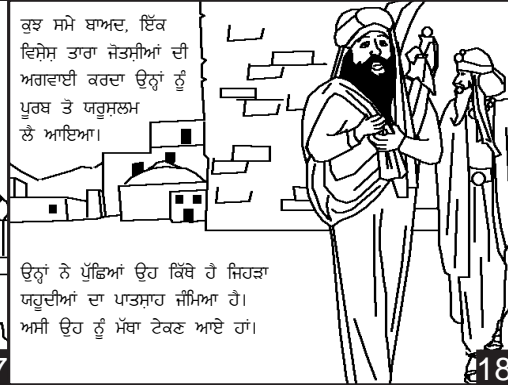 ਕੁਝ ਸਮੇ ਬਾਅਦ, ਇੱਕ
ਵਿਸ਼ੇਸ਼ ਤਾਰਾ ਜੋਤਸ਼ੀਆਂ ਦੀ
ਅਗਵਾਈ ਕਰਦਾ ਉਨ੍ਹਾਂ ਨੂੰ
ਪੂਰਬ ਤੋ ਯਰੂਸ਼ਲਮ
ਲੈ ਆਇਆ।
ਉਨ੍ਹਾਂ ਨੇ ਪੁੱਛਿਆਂ ਉਹ ਕਿੱਥੇ ਹੈ ਜਿਹੜਾ
ਯਹੂਦੀਆਂ ਦਾ ਪਾਤਸ਼ਾਹ ਜੰਮਿਆ ਹੈ।
ਅਸੀ ਉਹ ਨੂੰ ਮੱਥਾ ਟੇਕਣ ਆਏ ਹਾਂ।
7
18